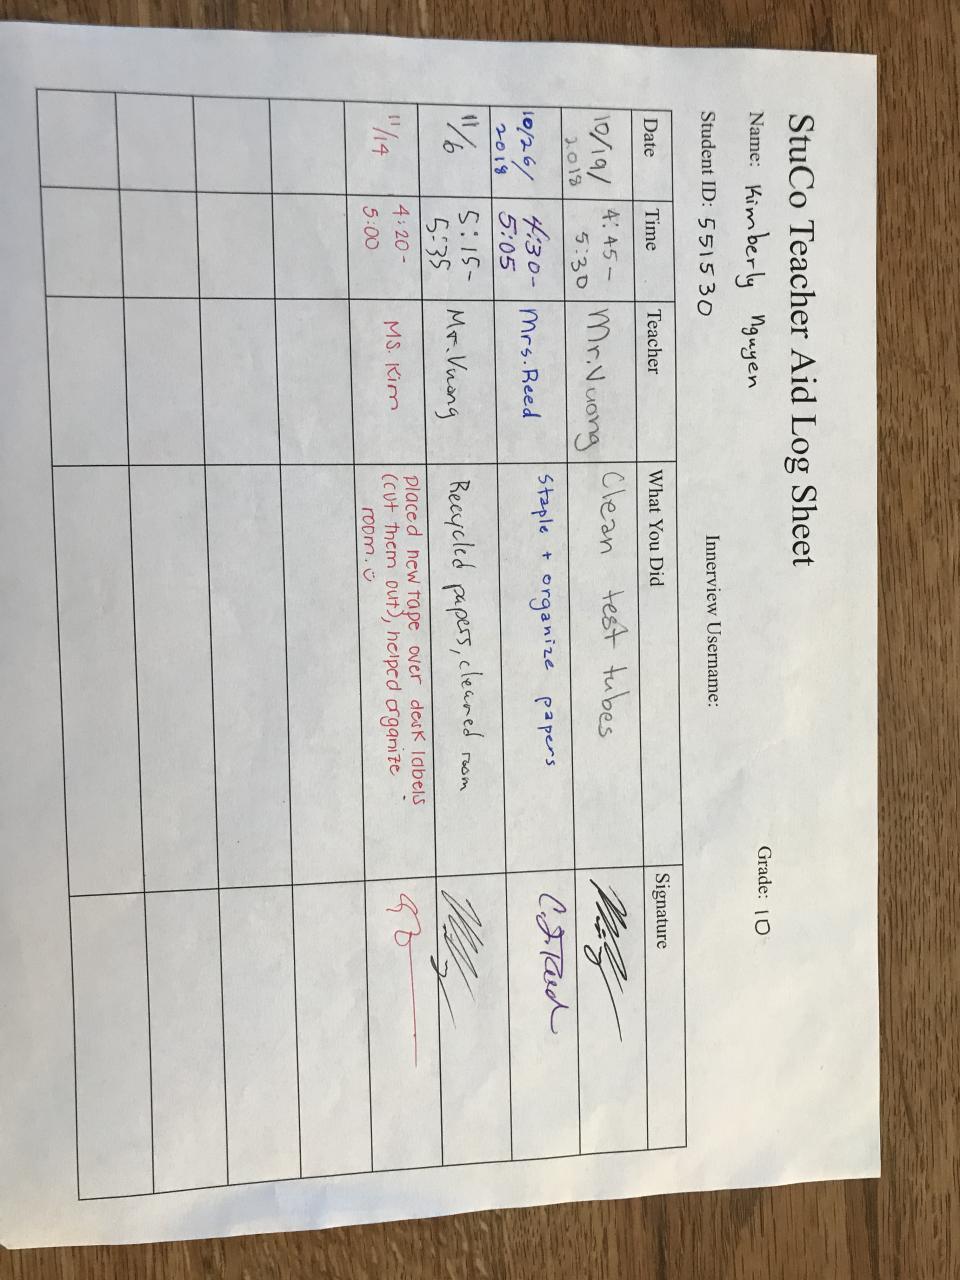 StuCo Teacher Aid Log Sheet
Name: Kimberly Nguyen Grade: 10
Student ID: 551530 Innerview Username:
Date Time Teacher What You Did Signature
10/19/
2018
4:45-
5:30
Mr.Vuong
Clean test tubes
10/26/
2018
4:30-
5:05
Mrs.Reed
Staple + organize papers
C.J.Reed
11/6
5:15-
5:35
Mr.Vuong
Recycled papers, cleaned room
11/14
4:20-
5:00
MS. Kim
placed new tape over desk labels
(cut them out), helped organize
room.